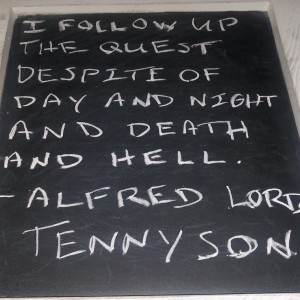 I FOLLOW UP
THE QUEST
DESPITE OF
DAY AND NIGHT
AND DEATH
AND HELL.
- ALFRED LORD
TENNYSON